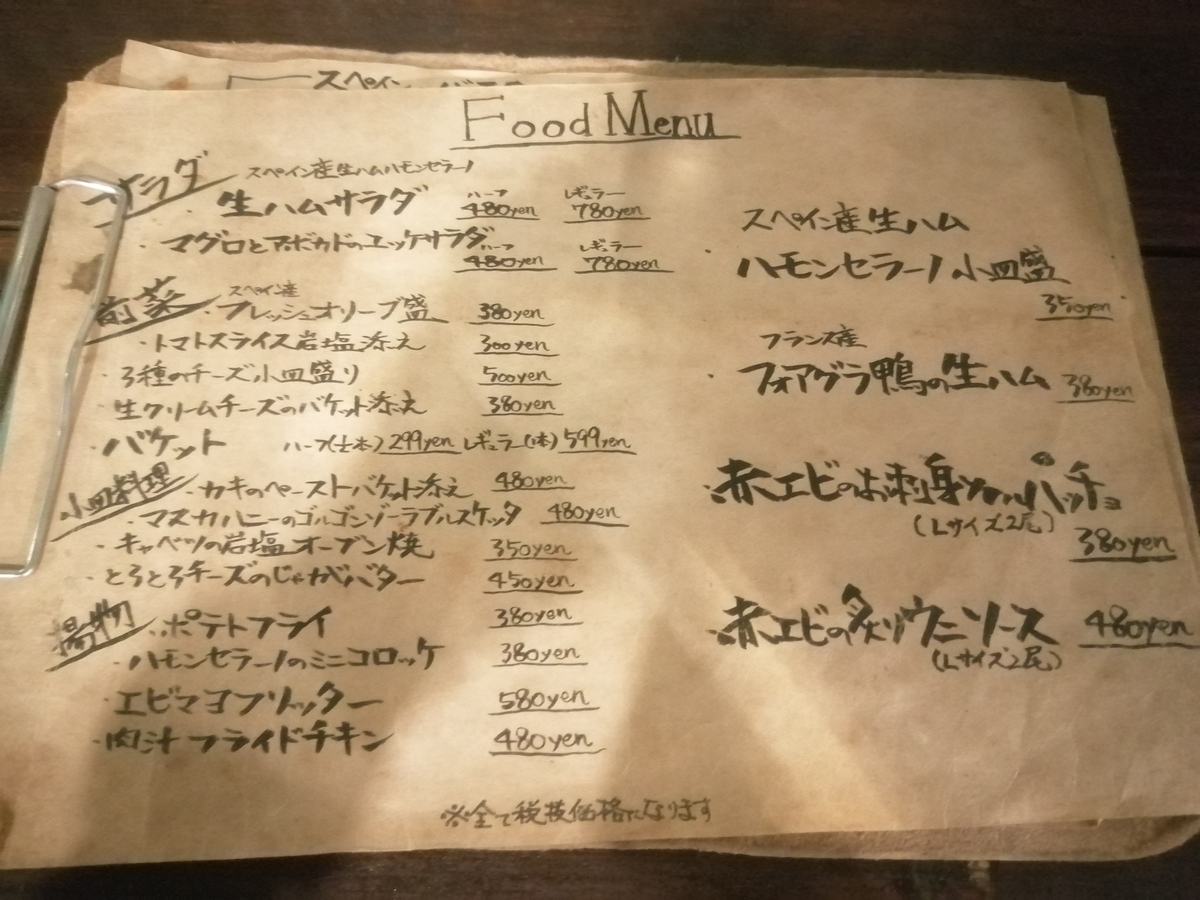 スペイン
Food Menu
サラダ
スペイン産生ハムハモンセラーノ
生ハムサラダ ハーフ 480yen レギュラー 780yen
・マグロとアボカドのユッケサラダ ハーフ 480yen レギュラー 780yen
前菜
スペイン産
・フレッシュオリーブ盛 380yen
・トマトスライス岩塩添え 300yen
・3種のチーズ小皿盛り 500yen
・生クリームチーズのバケット添え 380yen
・バケット ハーフ(½本)299yen レギュラー(1本)599yen
小皿料理
・カキのペーストバケット添え 480yen
・マスカハニーのゴルゴンゾーラブルスケッタ 480yen
・キャベツの岩塩オーブン焼 350yen
・とろとろチーズのじゃがバター 450yen
揚物
・ポテトフライ 380yen
・ハモンセラーノのミニコロッケ 380yen
・エビマヨフリッター 580yen
・肉汁フライドチキン 480yen
スペイン産生ハム
・ハモンセラーノ小皿盛
350yen
フランス産
・フォアグラ鴨の生ハム 380yen
・赤エビのお刺身カルパッチョ
(Lサイズ2尾)
380yen
・赤エビの炙りウニソース 480yen
(Lサイズ2尾)
※全て税抜価格になります